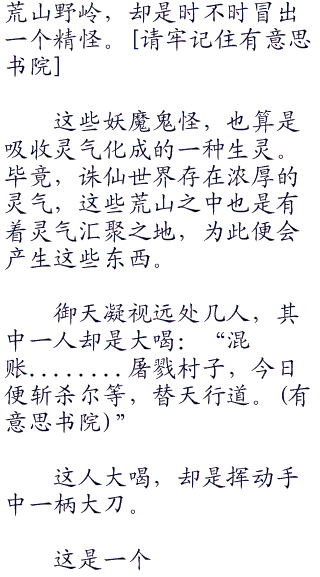 荒山野岭，却是时不时冒出
一个精怪。[请牢记住有意思
书院]
这些妖魔鬼怪，也算是
吸收灵气化成的一种生灵。
毕竟，诛仙世界存在浓厚的
灵气，这些荒山之中也是有
着灵气汇聚之地，为此便会
产生这些东西。
御天凝视远处几人，其
中一人却是大喝：“混
账........屠戮村子，今日
便斩杀尔等，替天行道。(有
意思书院)”
这人大喝，却是挥动手
中一柄大刀。
这是一个